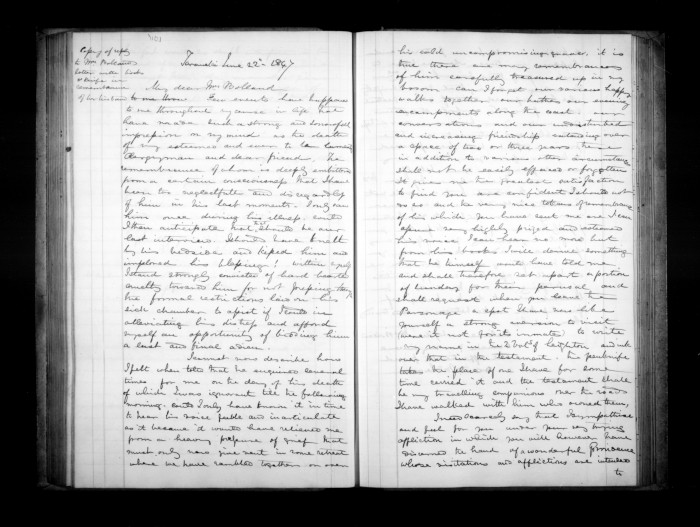 101
Copy of reply
to Mrs Bolland's
letter with books
& knife in
remembrance
of her husband
Taranaki June 22nd 1847
My dear Mrs Bolland
to me thrown. Few events have happened
to me throughout a course in life that
have made such a strong and sorrowful
impression on my mind as the death
of my esteemed and ever to be lamented
Clergyman and dear friend, the
remembrance of whom is deeply embittered
from a certain consciousness that I have
been too neglectful and disregardful
of him in his last moments. I only saw
him once during his illness, and
I then anticipated that it should be our
last interview I should have knelt
by his bedside and kissed him and
implored his blessing! Within myself
I stand strongly convicted of hard hearted
cruelty towards him for not forcing thro'
the formal restrictions laid on his
sick chamber to assist if I could in
alleviating his distress and afford
myself an opportunity of bidding him
a last and final adieu.
I cannot now describe how
I felt when told that he enquired several
times for me on the day of his death
of which I was ignorant till the following
morning. Could I only have known it in time
to hear his voice feeble and inarticulate
as it became it would have relieved me
from a heavy pressure of grief that
must only now give vent in some retreat
where we have rambled together or over
his cold uncompromising grave. it is
true there are many remembrances
of him carefully treasured up in my
bosom. Can I forget our various happy
walks together our bathes our evening
encampments along the coast our
conversations and our undisturbed
and increasing friendship extending over
a space of two or three years. these
in addition to various other circumstances
shall not be easily effaced or forgotten
It gives me the greatest satisfaction
to find you are confident I shall not
so and the very nice tokens of remembrance
of him which you have sent me are I can
assure you highly prized and esteemed
his voice I can hear no more but
from his books I will derive something
that he himself would have told me
and shall therefore set apart a portion
of Sunday for their perusal, and
shall request when you leave the
Parsonage a spot I have now like
yourself a strong aversion to visit
were it not for its inmates, to write
my name in the 2 Vols of Leighton and
over that in the testament. The penknife
takes the place of one I have for some
time carried & it and the testament shall
be my travelling companions over the roads
I have walked with him who owned them,
I need scarcely say that I sympathise
and feel for you under your very trying
affliction in which you will however have
discerned the hand of a wonderful Providence
whose visitations and afflictions are intended
to